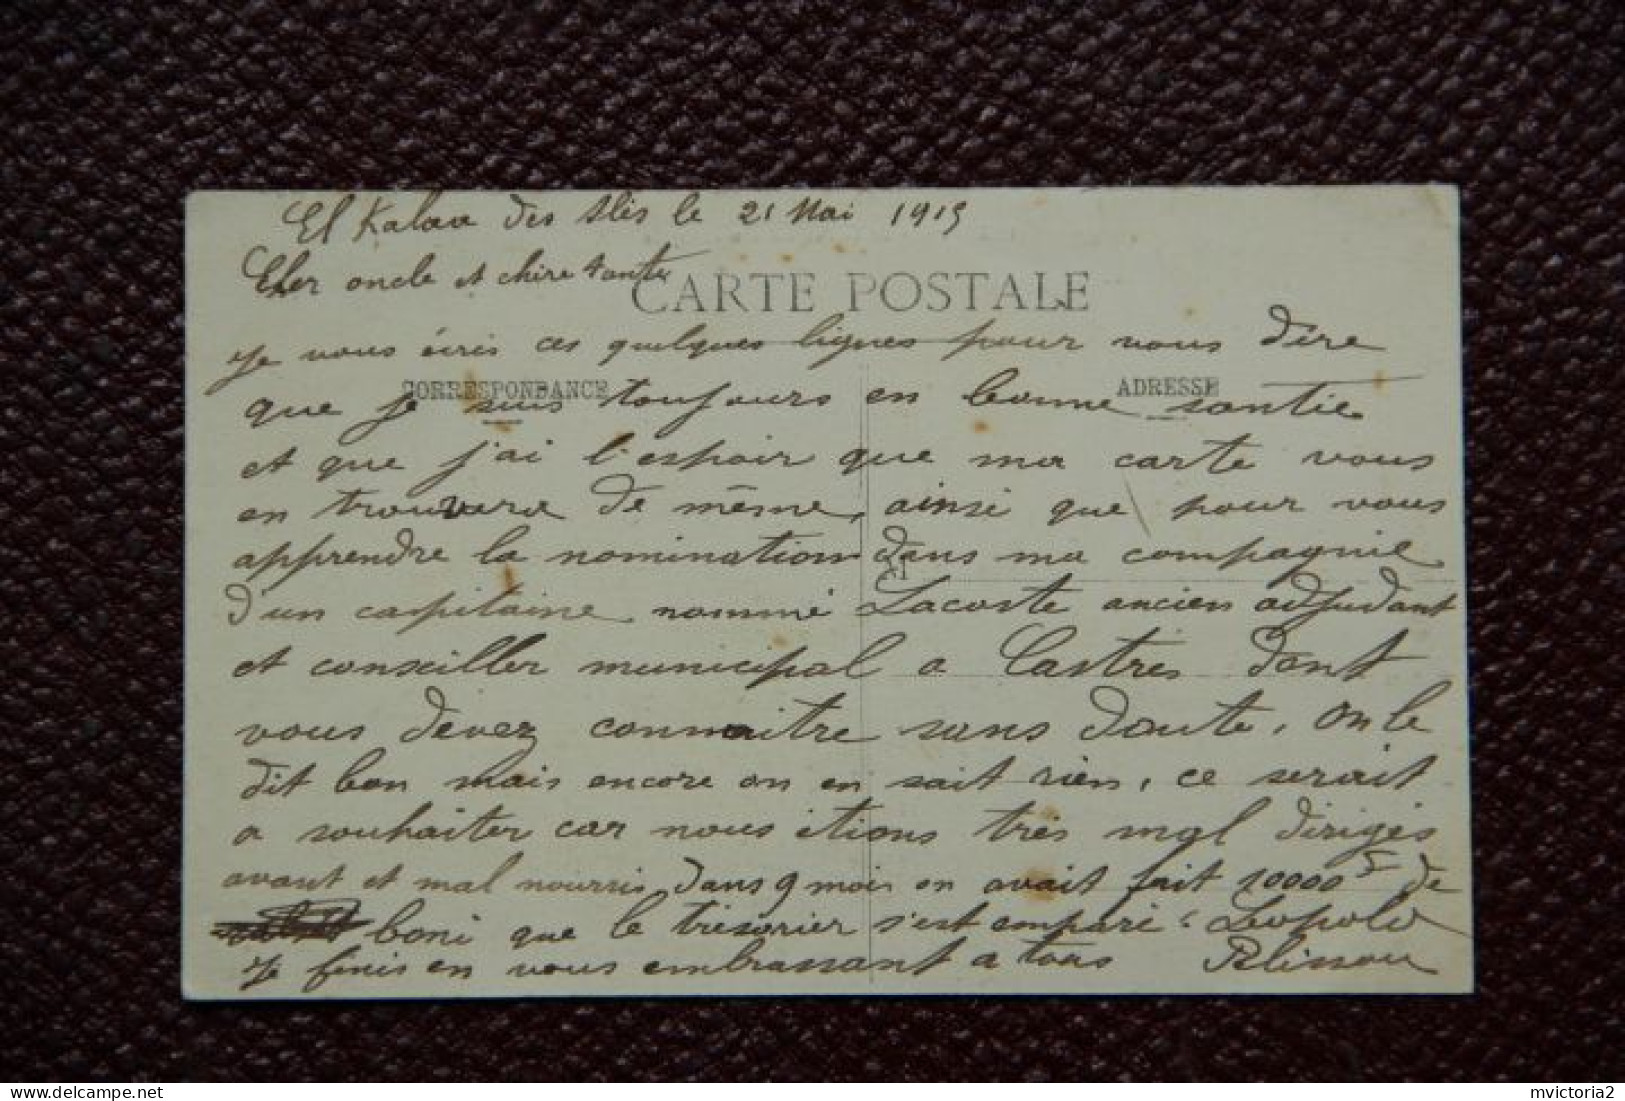 El Kalaa des Slès le 21 Mai 1915
Cher oncle et chire tante
CARTE POSTALE
Je vous écris ces quelques lignes pour vous dire
CORRESPONDANCE ADRESSE
que je suis toujours en bonne santie
et que j'ai l'espoir que ma carte vous
en trouvera de même, ainsi que pour vous
apprendre la nomination dans ma compagnie
d'un capitaine nommé Lacoste ancien adjudant
et conseiller municipal a Castres dont
vous devez connaitre sans doute, on le
dit bon mais encore on en sait rien, ce serait
a souhaiter car nous étions très mal dirigés
avant et mal nourris, dans 9 mois on avait fait 20000 F de
boni que le trésorier s'est emparé. Léopold
Je finis en vous embrassant a tous Pélissou
mvictoria2